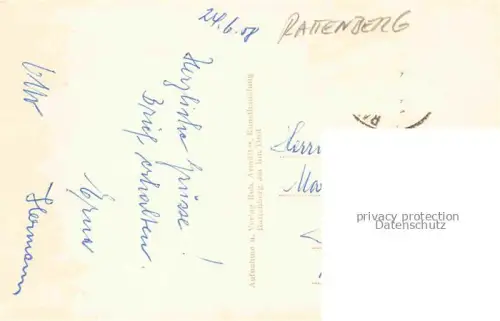 24.6.58
RATTENBERG
Herzliche Grüsse!
Brief erhalten.
Erna
Hermann
Aufnahme u. Verlag Rud. Armütter, Kunsthandlung
Rattenberg am Inn Tirol
Herrn
privacy protection
Datenschutz